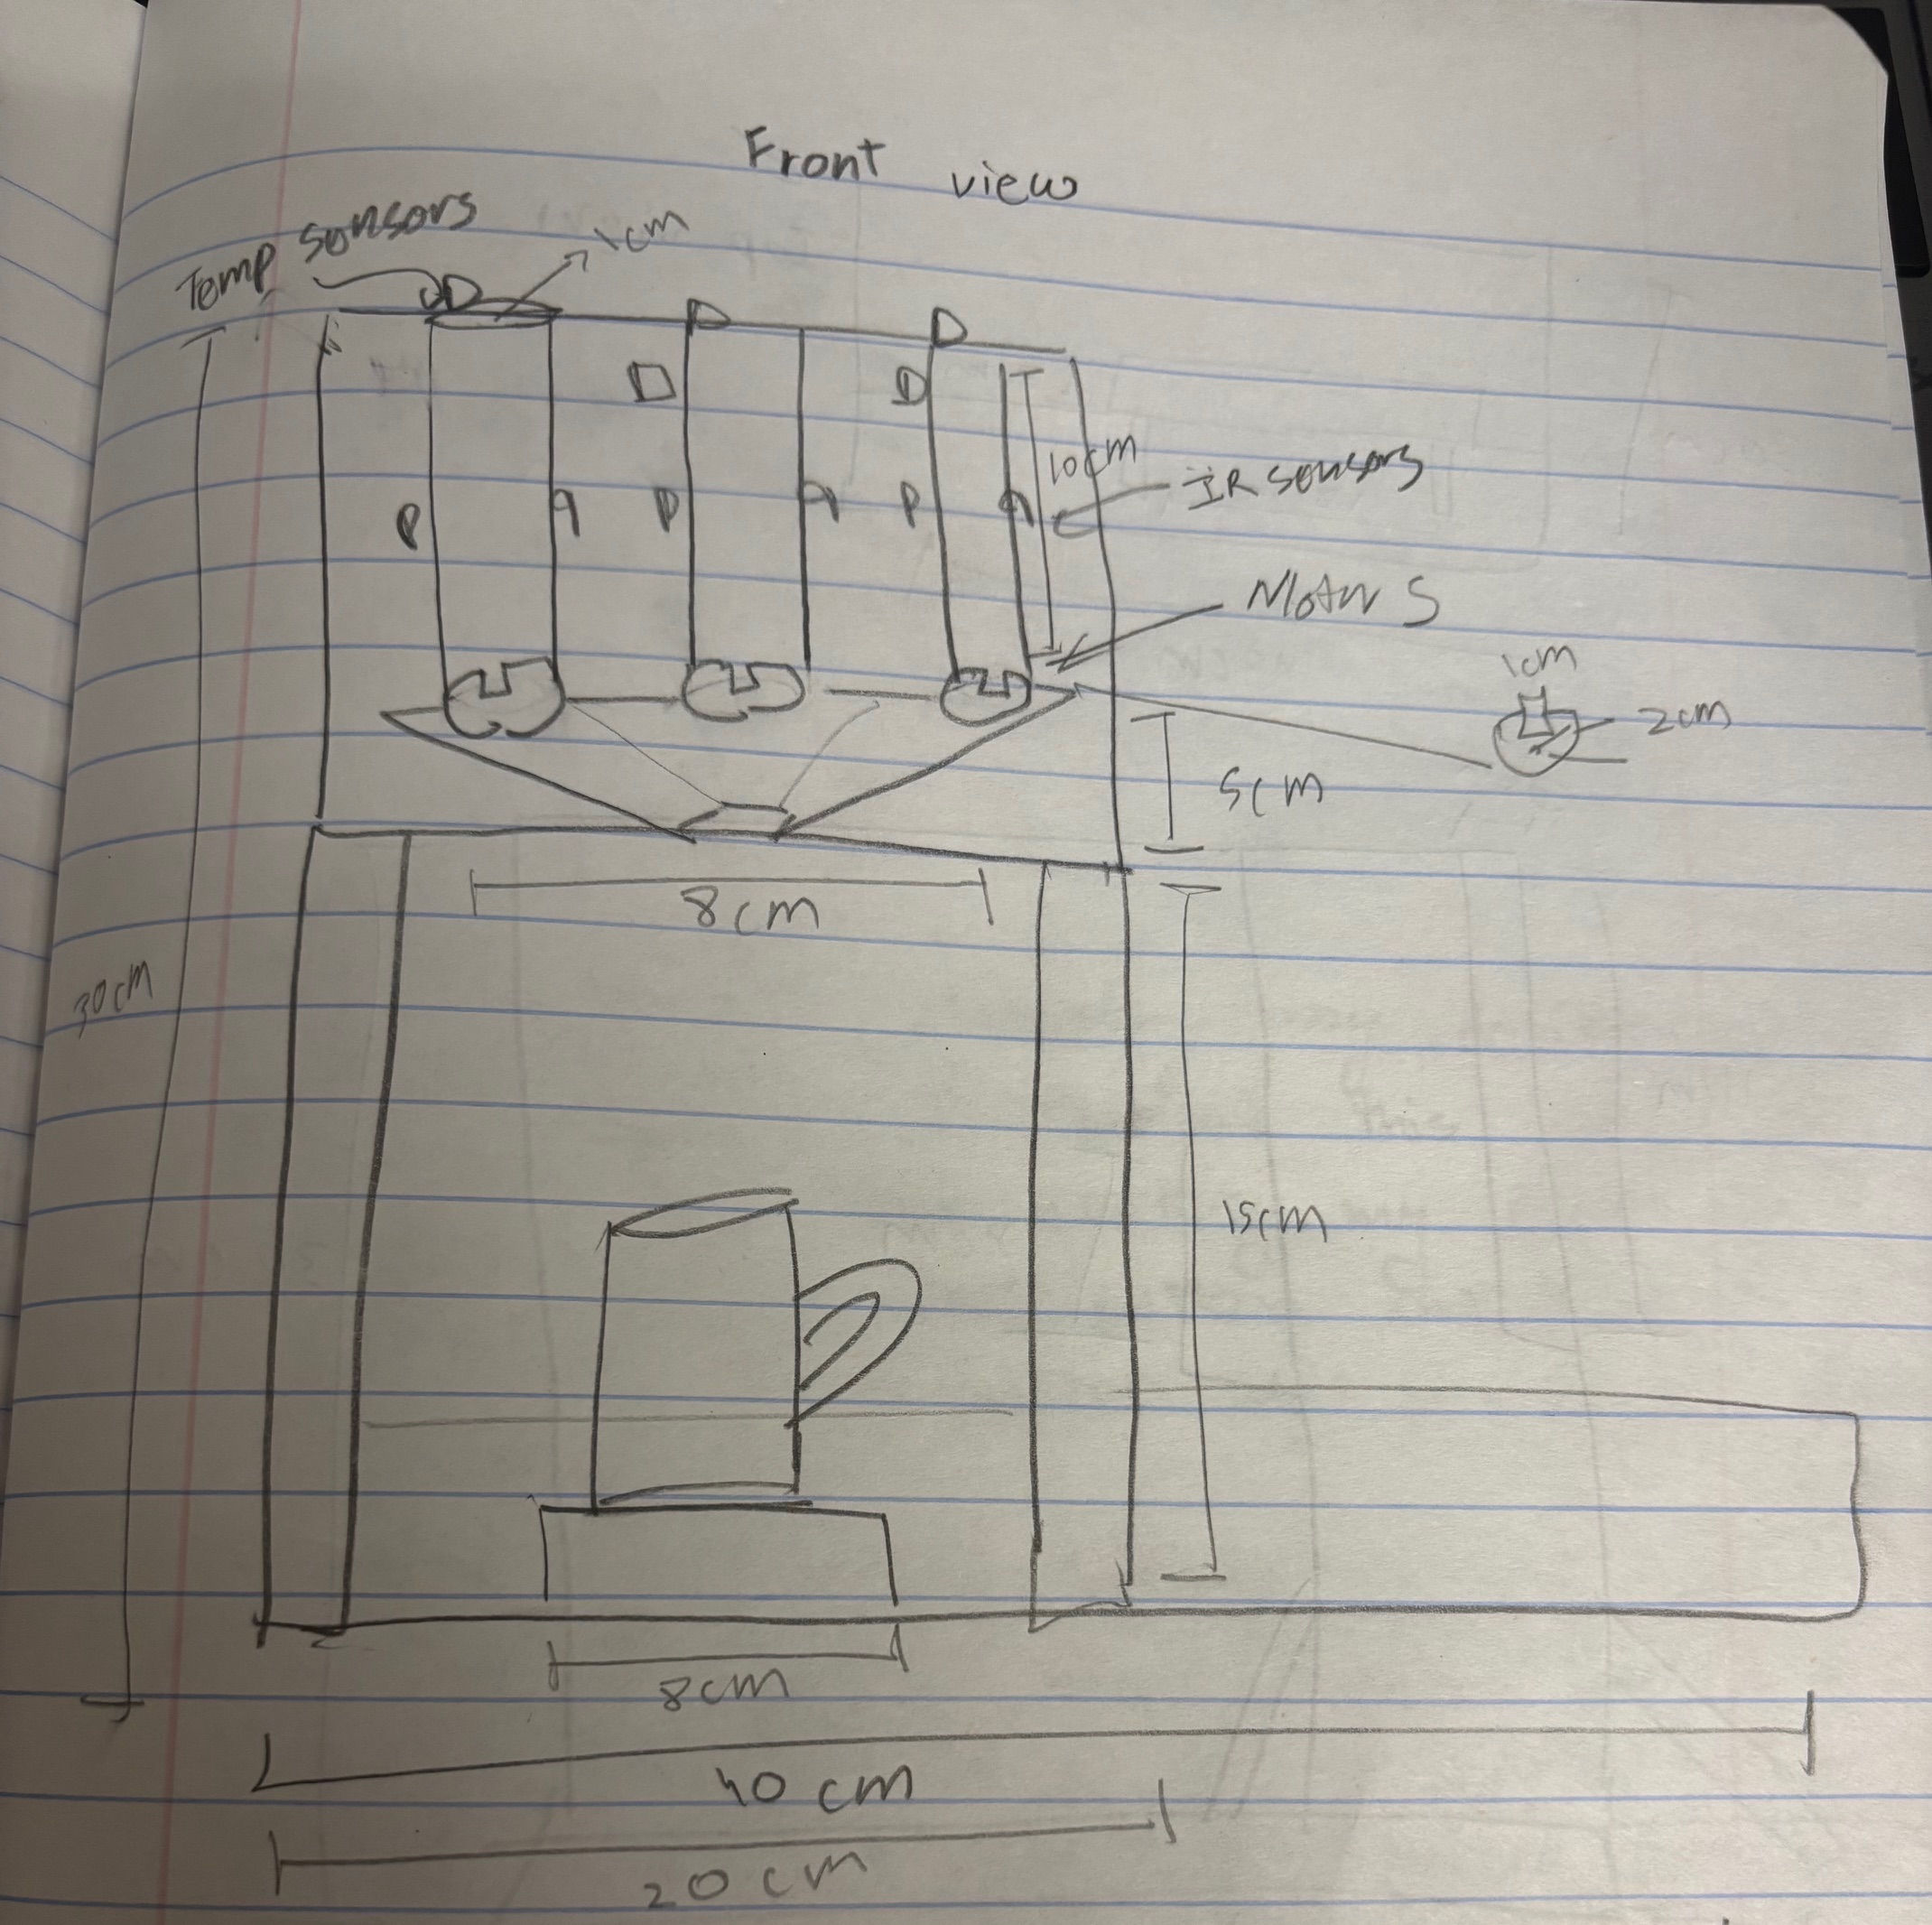 Front view
Temp sensors
1cm
10cm
IR sensors
Motors
1cm
2cm
5cm
8cm
30cm
15cm
8cm
40 cm
20 cm